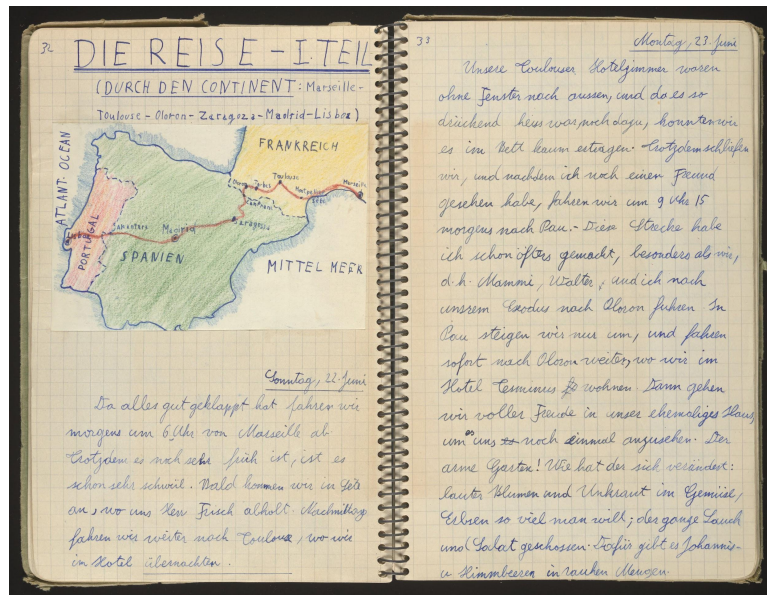 32
DIE REISE – I. TEIL
(DURCH DEN CONTINENT: Marseille-
Toulouse - Oloron - Zaragoza - Madrid - Lisboa)
ATLANT. OCEAN
FRANKREICH
Toulouse
Tarbes
Montpellier
Marseille
Sète
Canfranc
Zaragoza
Salamanca
Madrid
Lisboa
PORTUGAL
SPANIEN
MITTELMEER
Sonntag, 22. Juni
Da alles gut geklappt hat fahren wir
morgens um 6 Uhr von Marseille ab
Trotzdem es noch sehr früh ist, ist es
schon sehr schwül. Bald kommen wir in Sète
an, wo uns Herr Frisch abholt. Nachmittags
fahren wir weiter nach Toulouse, wo wir
im Hotel übernachten.
33
Montag, 23. Juni
Unsere Toulouser Hotelzimmer waren
ohne Fenster nach aussen, und da es so
drückend heiss war, noch dazu, konnten wir
es im Bett kaum ertragen. Trotzdem schliefen
wir, und nachdem ich noch einen Freund
gesehen habe, fahren wir um 9 Uhr 15
morgens nach Pau. - Diese Strecke habe
ich schon öfters gemacht, besonders als wir,
d.h. Mammi, Walter, und ich nach
unsrem Exodus nach Oloron fuhren In
Pau steigen wir nur um, und fahren
sofort nach Oloron weiter, wo wir im
Hotel Terminus wohnen Dann gehen
wir voller Freude in unser ehemaliges Haus,
um es uns noch einmal anzusehen. Der
arme Garten! Wie hat der sich verändert:
lauter Blumen und Unkraut im Gemüse,
Erbsen so viel man will; der ganze Lauch
und Salat geschossen. Dafür gibt es Johannis-
u. Himmbeeren in rauhen Mengen.